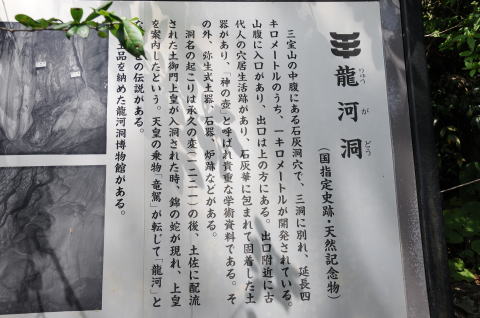 龍河洞
りゅう が どう
(国指定史跡・天然記念物)
三宝山の中腹にある石灰洞穴で、三洞に別れ、延長四
キロメートルのうち、一キロメートルが開発されている。
山腹に入口があり、出口は上の方にある。出口附近に古
代人の穴居生活跡があり、石灰華に包まれて固着した土
器があり、「神の壺」と呼ばれ貴重な学術資料である。そ
の外、弥生式土器、石器、炉跡などがある。
洞名の起こりは承久の変(一二二一)の後、土佐に配流
された土御門上皇が入洞された時、錦の蛇が現れ、上皇
を案内したという。天皇の乗物「竜駕」が転じて「龍河」と
の伝説がある。
土品を納めた龍河洞博物館がある。